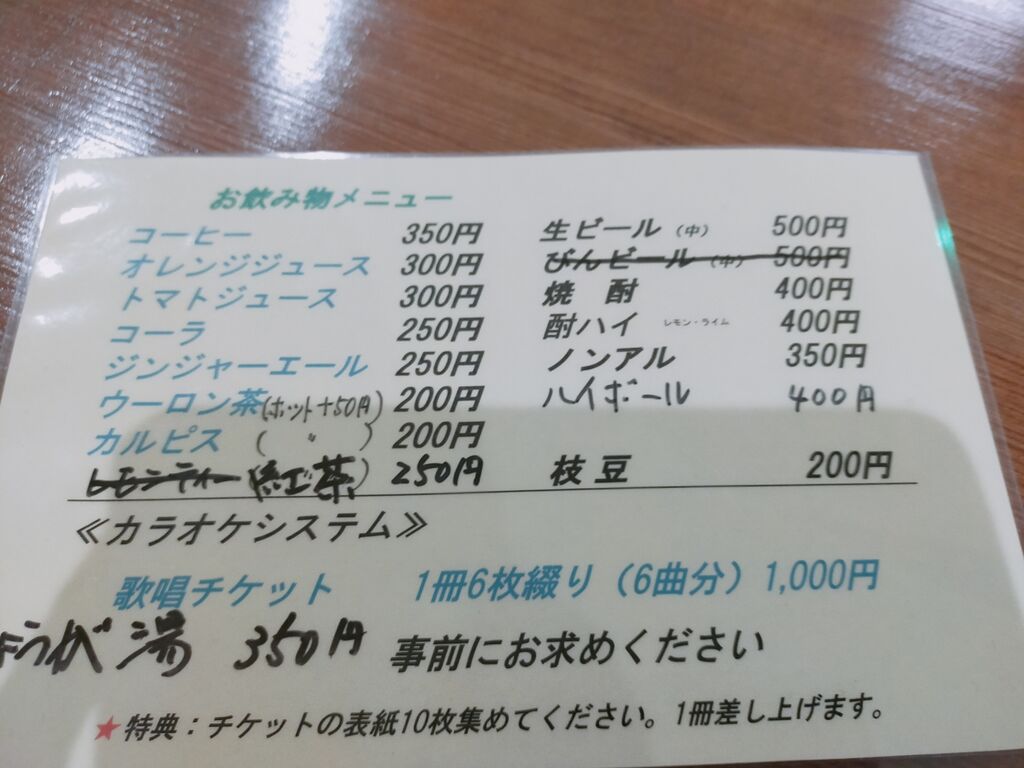 お飲み物メニュー
コーヒー 350円
オレンジジュース 300円
トマトジュース 300円
コーラ 250円
ジンジャーエール 250円
ウーロン茶(ホット+50円) 200円
カルピス ( 〃 ) 200円
レモンティー (紅茶) 250円
生ビール (中) 500円
びんビール (中) 500円
焼 酎 400円
酎ハイ レモン・ライム 400円
ノンアル 350円
ハイボール 400円
枝豆 200円
≪カラオケシステム≫
歌唱チケット 1冊6枚綴り(6曲分)1,000円
ょうが湯 350円 事前にお求めください
★特典:チケットの表紙10枚集めてください。1冊差し上げます。